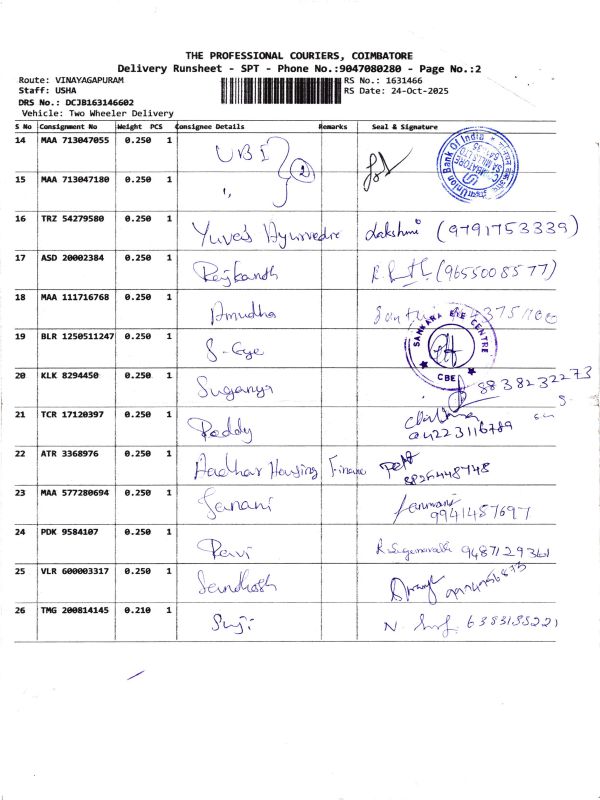 THE PROFESSIONAL COURIERS, COIMBATORE
Delivery Runsheet - SPT - Phone No.:9047080280 - Page No.:2
Route: VINAYAGAPURAM RS No.: 1631466
Staff: USHA RS Date: 24-Oct-2025
DRS No.: DCJB163146602
Vehicle: Two Wheeler Delivery
S No Consignment No Weight PCS Consignee Details Remarks Seal & Signature
14 MAA 713047055 0.250 1 UBI 2 Union Bank Of India
15 MAA 713047180 0.250 1 "
16 TRZ 54279580 0.250 1 Yuva's Ayurvedic Lakshmi (9791753339)
17 ASD 20002384 0.250 1 Rajkanth (9655008577)
18 MAA 111716768 0.250 1 Amudha
19 BLR 1250511247 0.250 1 S-Eye SANKARA EYE CENTRE CBE
20 KLK 8294450 0.250 1 Suganya 8838232273
21 TCR 17120397 0.250 1 Reddy 04223116789
22 ATR 3368976 0.250 1 Aadhar Housing Finance
23 MAA 577280694 0.250 1 Janani 9941457697
24 PDK 9584107 0.250 1 Ravi 9487129361
25 VLR 600003317 0.250 1 Santhosh
26 TMG 200814145 0.210 1 Suji